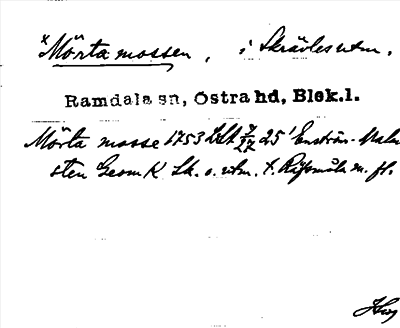 ×Mörta mossen, i Skrävle s utm.
Ramdala sn, Östra hd, Blek.l.
Mörta mosse 1753 LSA 7/27 25' Enström-Malm
sten Geom K Sk. o. utm. t. Rijsmåla m. fl.